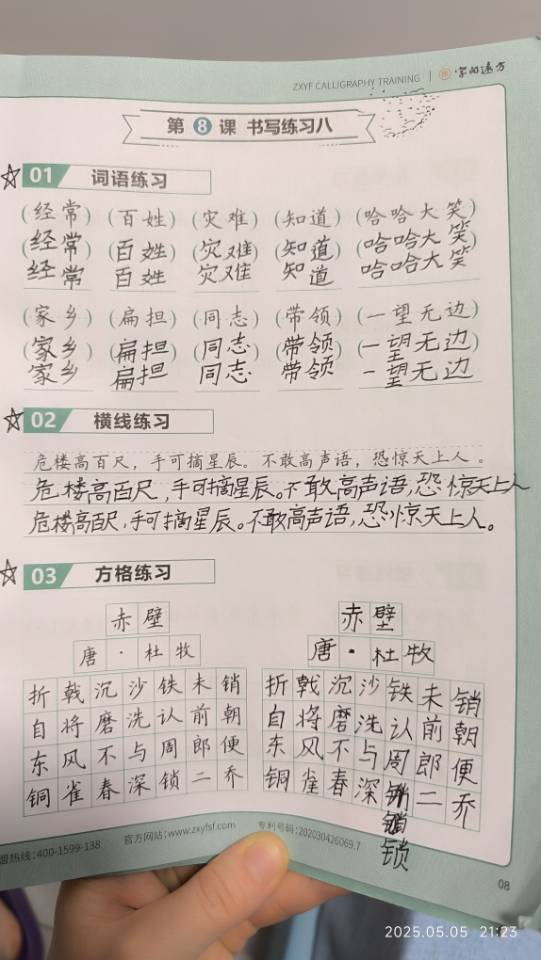 ZXYF CALLIGRAPHY TRAINING | 字如远方
第 8 课 书写练习八
01 词语练习
(经常) (百姓) (灾难) (知道) (哈哈大笑)
(经常) (百姓) (灾难) (知道) (哈哈大笑)
经常 百姓 灾难 知道 哈哈大笑
(家乡) (扁担) (同志) (带领) (一望无边)
(家乡) (扁担) (同志) (带领) (一望无边)
家乡 扁担 同志 带领 一望无边
02 横线练习
危楼高百尺，手可摘星辰。不敢高声语，恐惊天上人。
危楼高百尺,手可摘星辰。不敢高声语,恐惊天上人
危楼高百尺,手可摘星辰。不敢高声语,恐惊天上人。
03 方格练习
赤壁 赤壁
唐·杜牧 唐·杜牧
折戟沉沙铁未销 折戟沉沙铁未销
自将磨洗认前朝 自将磨洗认前朝
东风不与周郎便 东风不与周郎便
铜雀春深锁二乔 铜雀春深 二乔
锁
盟热线：400-1599-138 官方网站：www.zxyfsf.com 专利号码：202030426069.7
08
2025.05.05 21:23